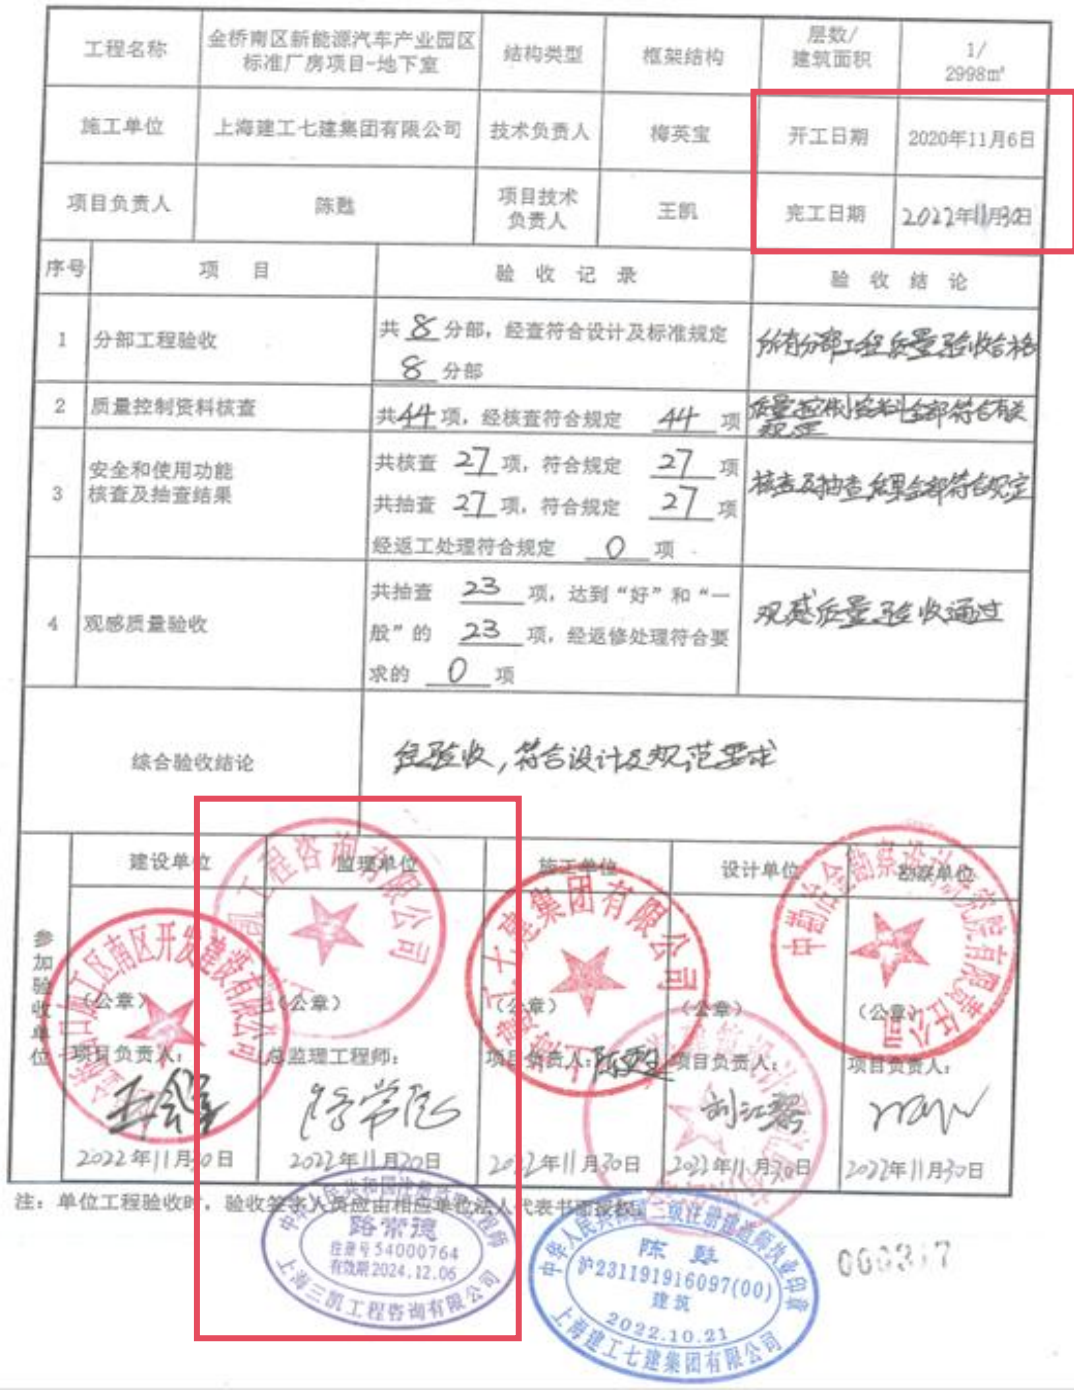 工程名称
金桥南区新能源汽车产业园区
标准厂房项目-地下室
结构类型
框架结构
层数/
建筑面积
1/
2998㎡
施工单位
上海建工七建集团有限公司
技术负责人
梅英宝
开工日期
2020年11月6日
项目负责人
陈甦
项目技术
负责人
王凯
完工日期
2022年11月30日
序号
项 目
验 收 记 录
验 收 结 论
1
分部工程验收
共 8 分部，经查符合设计及标准规定
8 分部
所有分部工程质量验收合格
2
质量控制资料核查
共 44 项，经核查符合规定 44 项
质量控制资料全部符合有关
规定
3
安全和使用功能
核查及抽查结果
共核查 27 项，符合规定 27 项
共抽查 27 项，符合规定 27 项
经返工处理符合规定 0 项
核查及抽查结果全部符合规定
4
观感质量验收
共抽查 23 项，达到“好”和“一
般”的 23 项，经返修处理符合要
求的 0 项
观感质量验收通过
综合验收结论
经验收，符合设计及规范要求
参加验收单位
建设单位
监理单位
施工单位
设计单位
勘察单位
工程咨询有限公司
南区开发建设有限公司
七建集团有限公司
（公章）
（公章）
（公章）
（公章）
（公章）
项目负责人：
总监理工程师：
项目负责人：陈甦
项目负责人：
项目负责人：
2022年11月30日
2022年11月30日
2022年11月30日
2022年11月30日
2022年11月30日
注：单位工程验收时，验收签字人员应由相应单位法人代表书面授权。
路常德
注册号54000764
有效期2024.12.06
上海三凯工程咨询有限公司
中华人民共和国二级注册建造师执业印章
陈 甦
沪231191916097(00)
建筑
2022.10.21
上海建工七建集团有限公司
000317